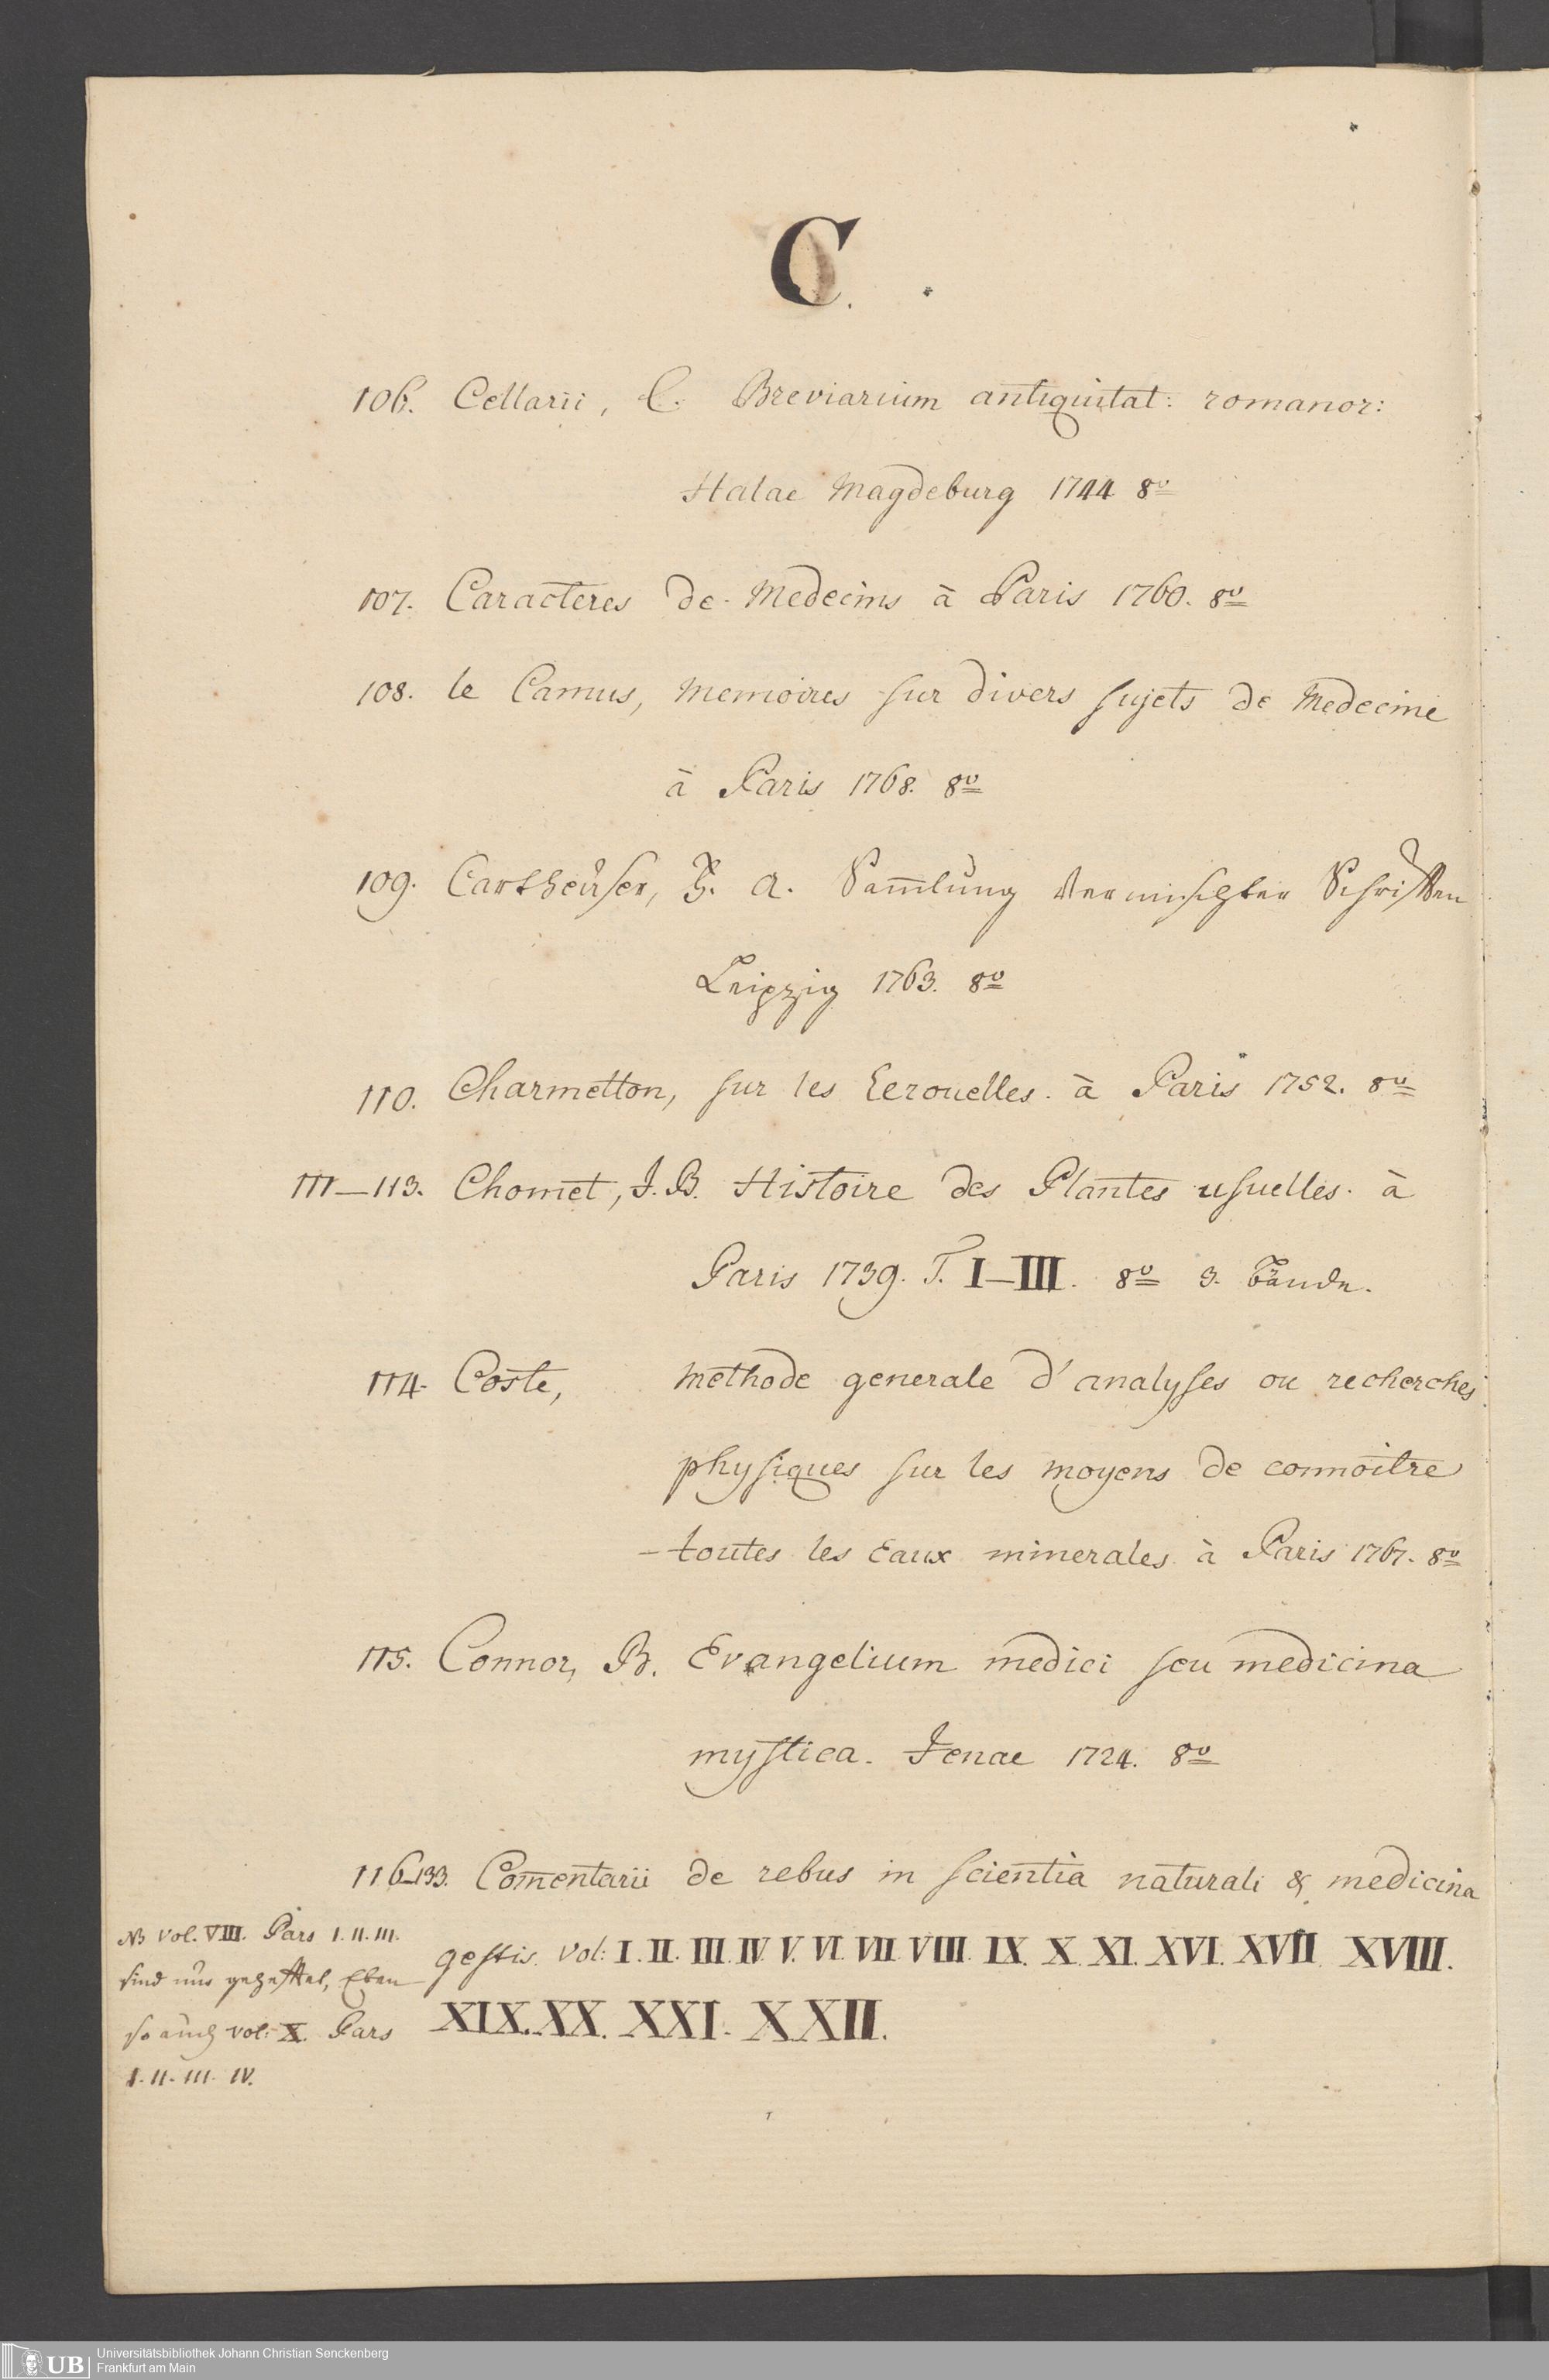 C.
106. Cellarii, C. Breviarium antiquitat: romanor:
Halae Magdeburg 1744 8º
107. Caracteres de Medecins à Paris 1760. 8º
108. le Camus, Memoires sur divers sujets de Medecine
à Paris 1768. 8º
109. Cartheuser, F. A. Sam̄lung vermischter Schriften
Leipzig 1763. 8º
110. Charmetton, sur les Ecrouelles. à Paris 1752. 8º
111–113. Chomet, J. B. Histoire des Plantes usuelles. à
Paris 1739. T. I–III. 8º 3. Bände.
114. Coste, methode generale d'analyses ou recherches
physiques sur les moyens de connoitre
toutes les Eaux minerales à Paris 1767. 8º
115. Connor, B. Evangelium medici seu medicina
mystica. Jenae 1724. 8º
116–133. Com̄entarii de rebus in scientia naturali & medicina
gestis. vol: I. II. III. IV. V. VI. VII. VIII. IX. X. XI. XVI. XVII. XVIII.
XIX. XX. XXI. XXII.
NB vol. VIII. Pars I. II. III.
sind nur geheftet, Eben
so auch vol: X. Pars
I. II. III. IV.
UB Universitätsbibliothek Johann Christian Senckenberg
Frankfurt am Main